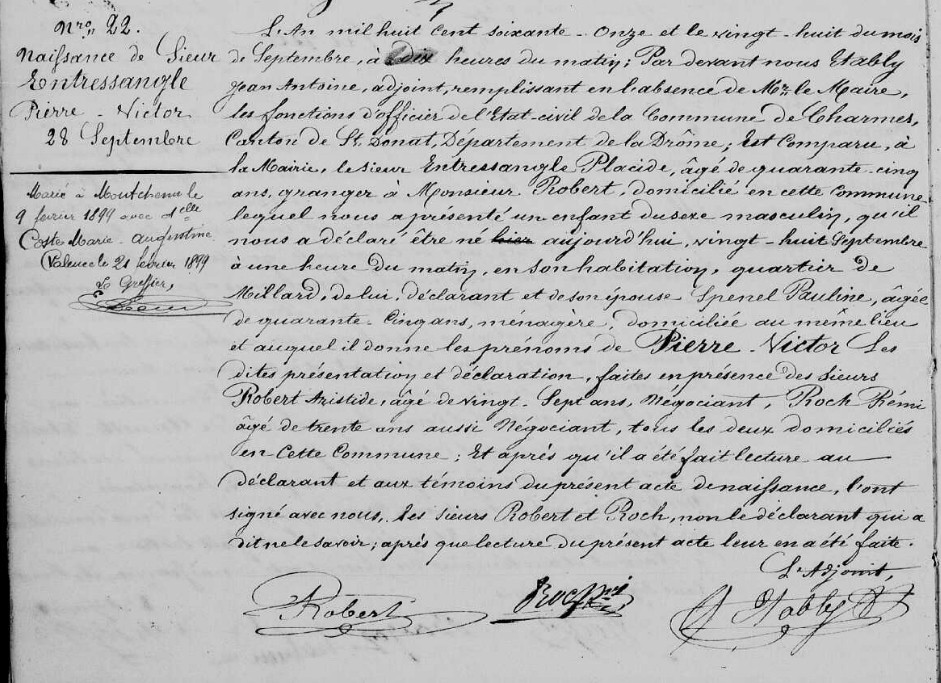 Nro 22.
Naissance de Sieur
Entressangle
Pierre-Victor
28 Septembre
Marié à Montchenu le
9 février 1899 avec Mlle
Coste Marie-augustine
Valence le 21 février 1899
Le Greffier,
L'An mil huit cent soixante-Onze et le vingt-huit du mois
de Septembre, à dix heures du matin; Par devant nous Etably
Jean Antoine, adjoint, remplissant en l'absence de Mr le Maire,
les fonctions d'officier de l'Etat-civil de la Commune de Charmes,
Canton de St. Donat, Département de la Drôme, Est Comparu, à
la Mairie, le sieur Entressangle Placide, âgé de quarante-cinq
ans, granger à Monsieur Robert, domicilié en cette Commune
lequel nous a présenté un enfant du sexe masculin, qu'il
nous a déclaré être né hier aujourd'hui, vingt-huit Septembre
à une heure du matin, en son habitation, quartier de
Millard, de lui, déclarant et de son épouse Spenel Pauline, âgée
de quarante-Cinq ans, ménagère, domiciliée au même lieu
et auquel il donne les prénoms de Pierre-Victor Les
dites présentation et déclaration, faites en présence des Sieurs
Robert Aristide, âgé de vingt-Sept ans, Négociant, Roch Rémi
âgé de trente ans aussi Négociant, tous les deux domiciliés
en Cette Commune; Et après qu'il a été fait lecture au
déclarant et aux témoins du présent acte de naissance, l'ont
signé avec nous, les sieurs Robert et Roch, non le déclarant qui a
dit ne le savoir; après que lecture du présent acte leur en a été faite.
L'Adjoint,
Robert
Roch Rémi
Etably